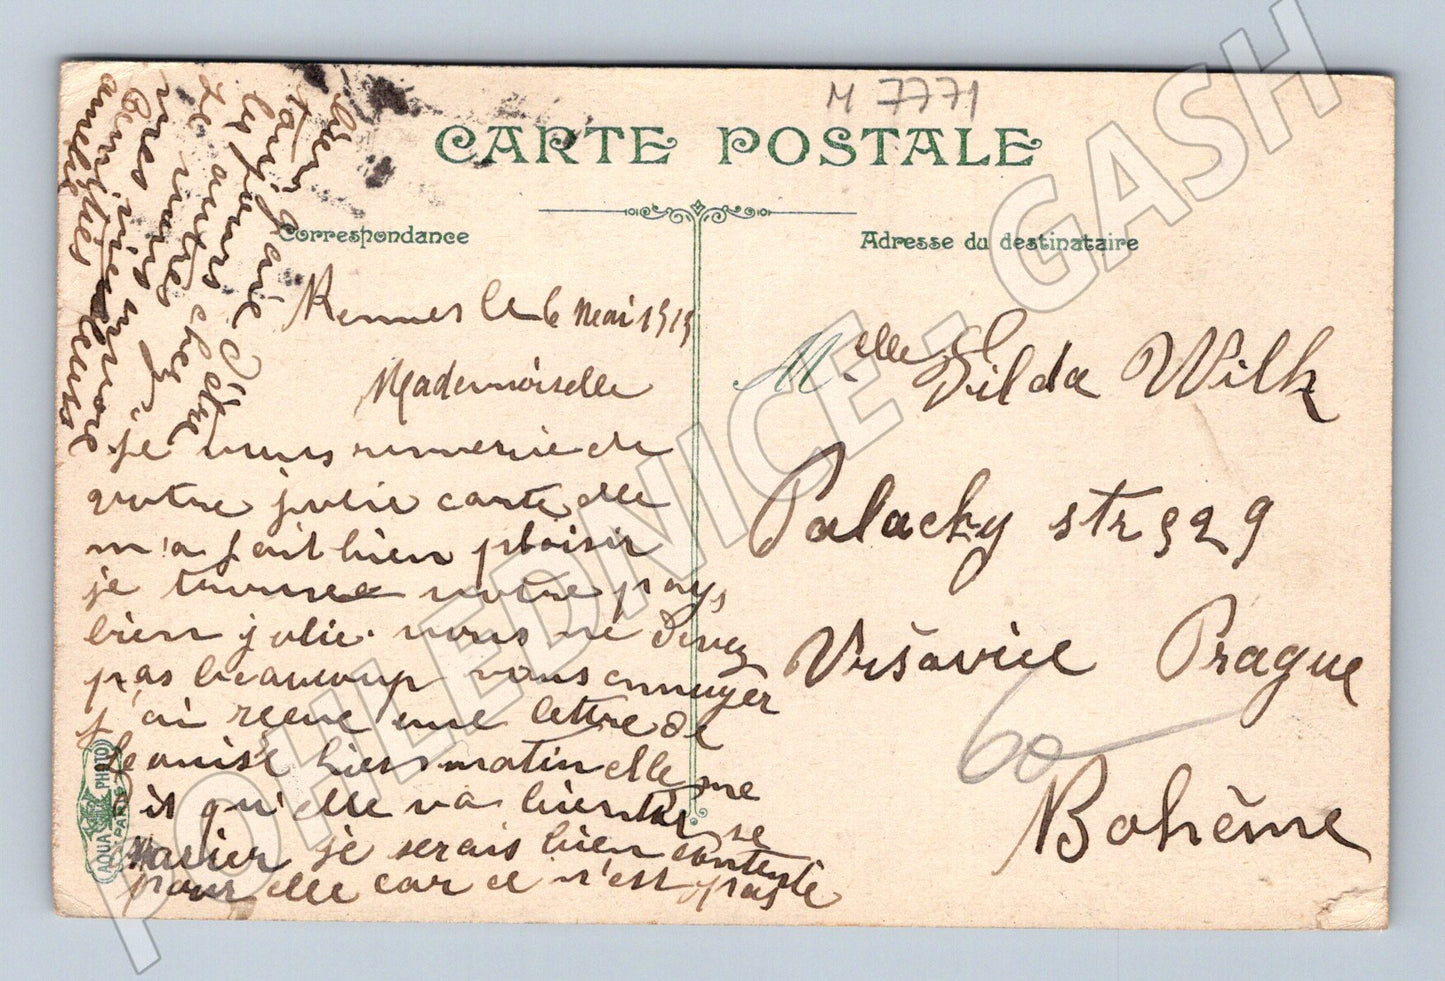 M 7771
CARTE POSTALE
Correspondance
Adresse du destinataire
Rennes le 6 Mai 1919
Mademoiselle
je vous remercie de
votre jolie carte elle
m'a fait bien plaisir
je trouve votre pays
bien jolie. vous ne devez
pas beaucoup vous ennuyer
j'ai recue une lettre de
Leonise hier matin elle me
dit qu'elle va bientot se
marier je serais bien contente
pour elle car ce n'est pas
bien gaie d'etre
toujours chez
les autres
je vous
Amitiés
Mlle Gilda Wilk
Palacky str 929
Vršovice Prague
60
Bohême
AQUA PHOTO
PARIS
POHLEDNICE - GASH